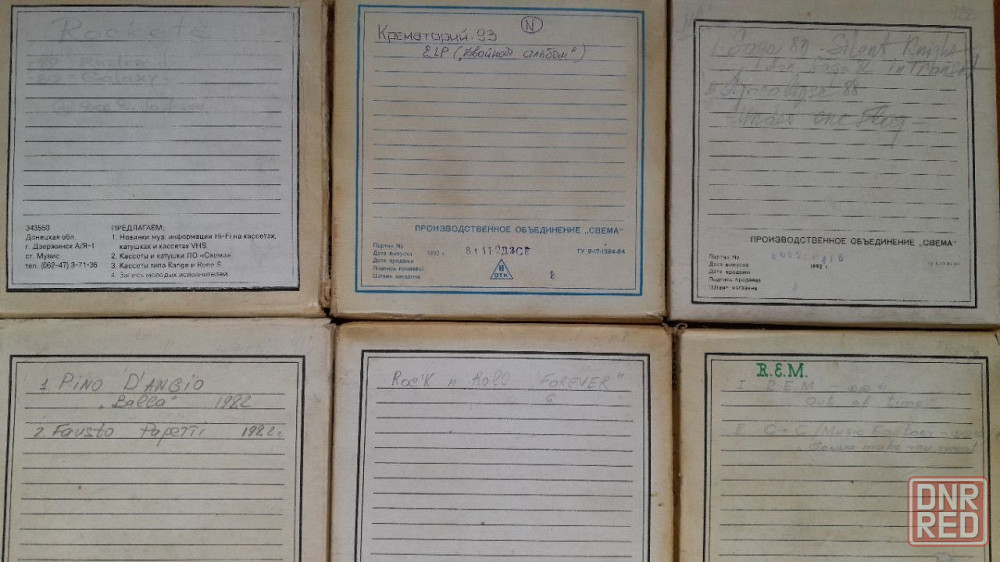 Rockets
Galaxy
343550
Донецкая обл.
г. Дзержинск А/Я-1
ст. Мувис
тел. (062-47) 3-71-36
ПРЕДЛАГАЕМ:
1. Новинки муз. информации Hi-Fi на кассетах,
катушках и кассетах VHS
2. Кассеты и катушки ПО «Свема»
3. Кассеты типа Range и Rone S
4. Запись молодых исполнителей.
N
Крематорий-93
2LP („двойной альбом")
ПРОИЗВОДСТВЕННОЕ ОБЪЕДИНЕНИЕ „СВЕМА"
Партия №
Дата выпуска 1992 г.
Дата продажи
Подпись продавца
Штамп магазина
ОТК
8
I Saga 80 - Silent Knight
Saga 82 in Transit
88
Under one Flag
ПРОИЗВОДСТВЕННОЕ ОБЪЕДИНЕНИЕ „СВЕМА"
Партия №
Дата выпуска 1992 г.
Дата продажи
Подпись продавца
Штамп магазина
1. PINO D'ANGIO
„Balla" 1982
2. Fausto Papetti 1982 г.
Roc'K n Roll „FOREVER"
6
R.E.M.
I R.E.M.
Out of time
II C+C/Music Factory
DNR
RED